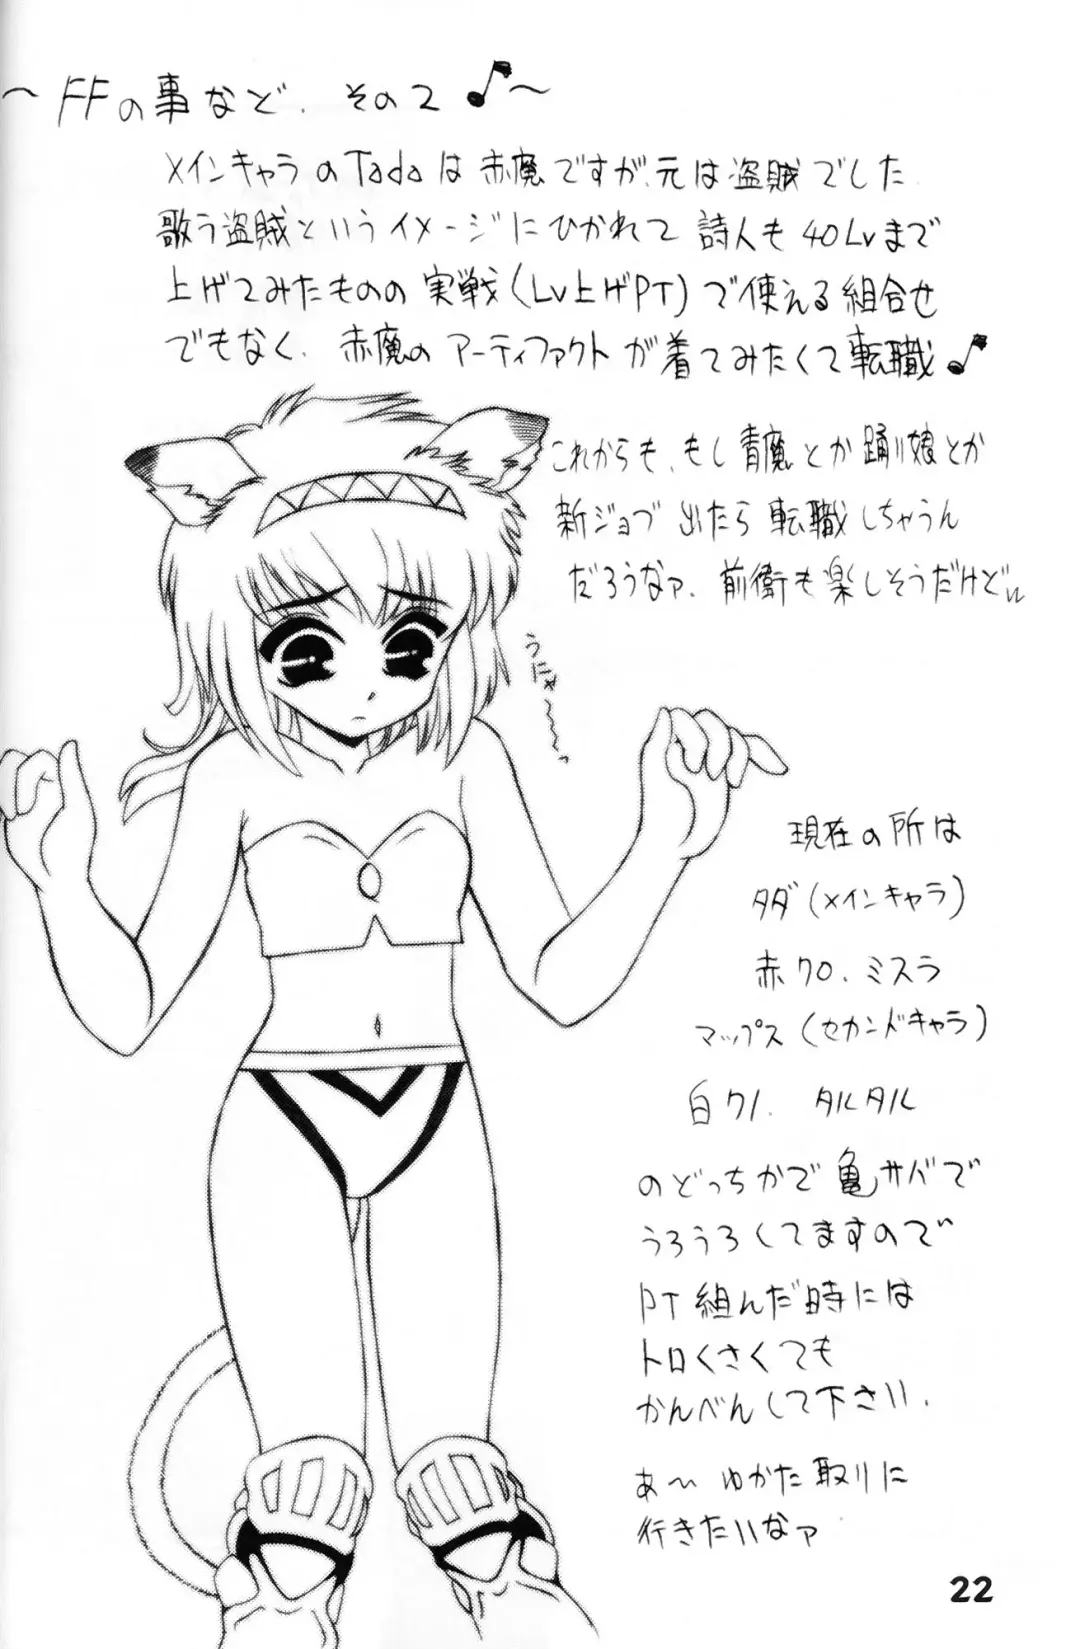 ～FFの事など. その2♪～
メインキャラのTadaは赤魔ですが、元は盗賊でした.
歌う盗賊というイメージにひかれて詩人も40Lvまで
上げてみたものの実戦(Lv上げPT)で使える組合せ
でもなく、赤魔のアーティファクトが着てみたくて転職♪
これからも、もし青魔とか踊り娘とか
新ジョブ出たら転職しちゃうん
だろうなァ. 前衛も楽しそうだけどw
うにゃ～～っ
現在の所は
タダ(メインキャラ)
赤70. ミスラ
マップス(セカンドキャラ)
白71. タルタル
のどっちかで亀サバで
うろうろしてますので
PT組んだ時には
トロくさくても
かんべんして下さい.
あ～ ゆかた取りに
行きたいなァ
22